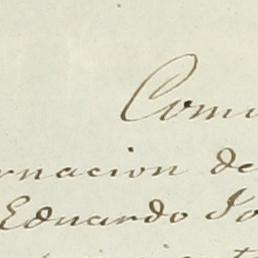 Com
rnacion de
Eduardo Jo